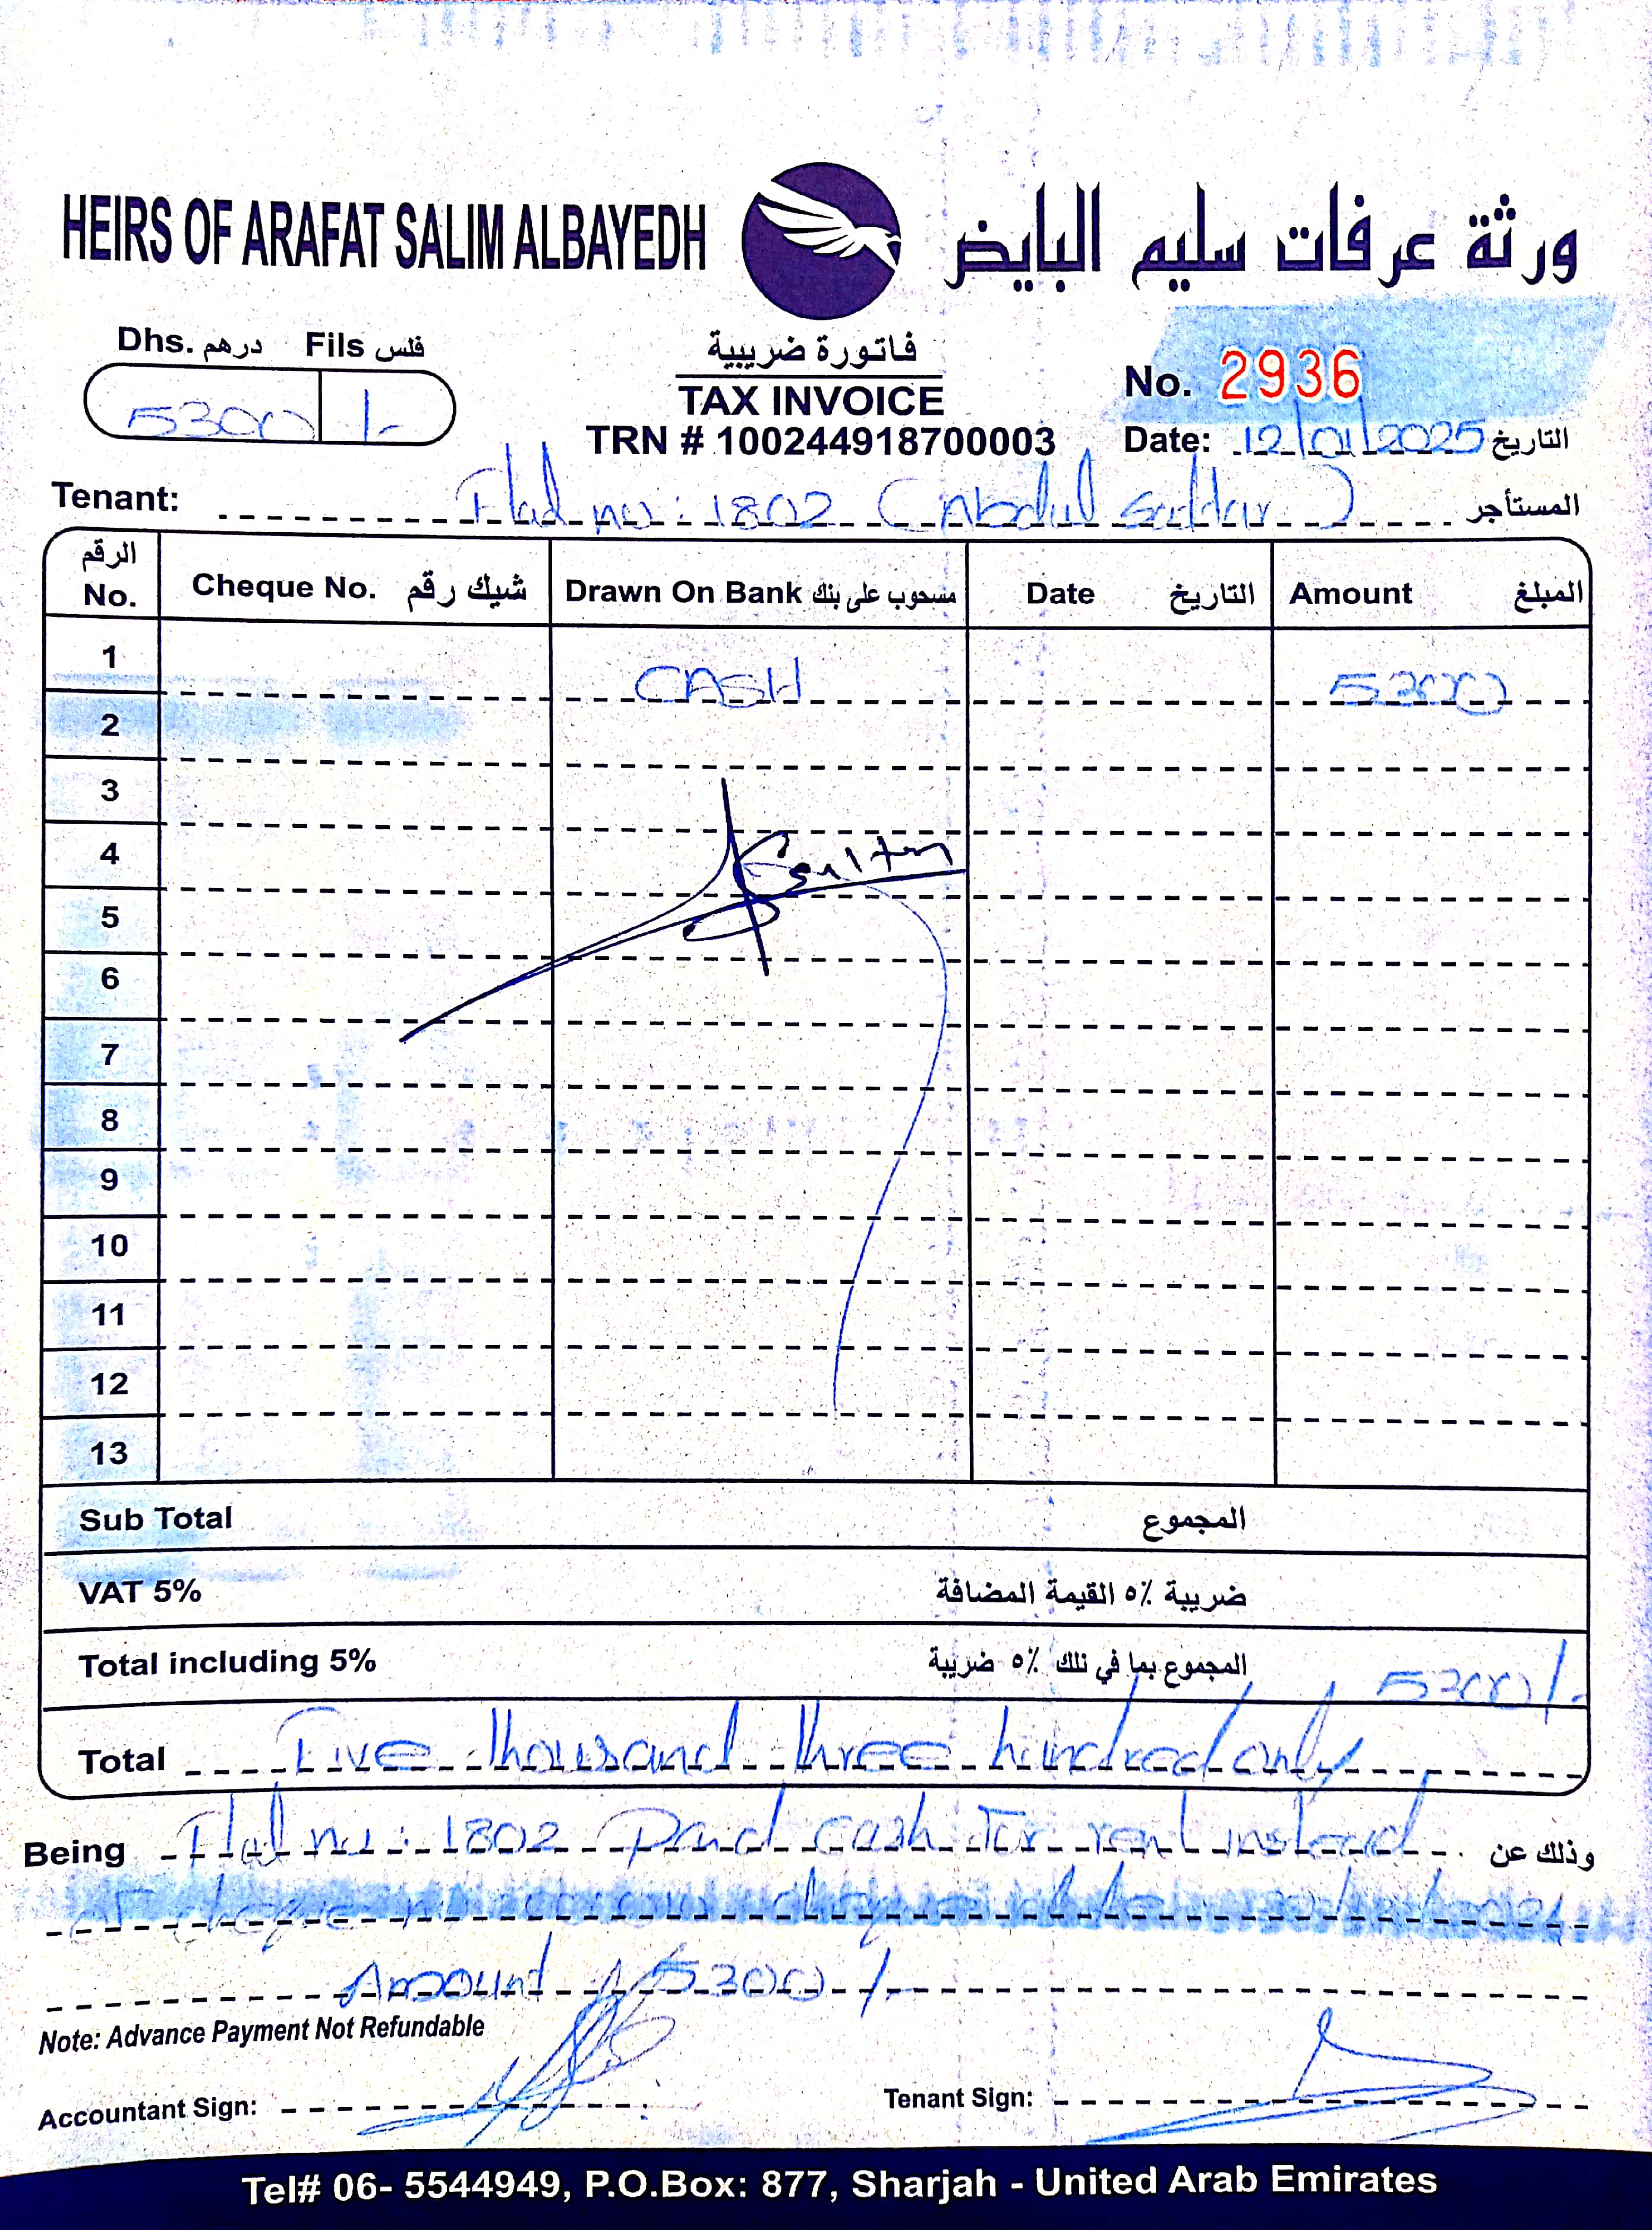 HEIRS OF ARAFAT SALIM ALBAYEDH
ورثة عرفات سليم البايض
Dhs. درهم Fils فلس
5300 /-
فاتورة ضريبية
TAX INVOICE
TRN # 100244918700003
No. 2936
Date: 12/01/2025 التاريخ
Tenant: Flat no: 1802 (Abdul Sattar) المستأجر
الرقم No. Cheque No. شيك رقم Drawn On Bank مسحوب على بنك Date التاريخ Amount المبلغ
1 CASH 5300
2
3
4 Sultan
5
6
7
8
9
10
11
12
13
Sub Total المجموع
VAT 5% ضريبة ٥٪ القيمة المضافة
Total including 5% المجموع بما في ذلك ٥٪ ضريبة 5300/-
Total Five thousand three hundred only
Being Flat no: 1802 Paid cash for rent instead وذلك عن
of cheque no
Amount 5300/-
Note: Advance Payment Not Refundable
Accountant Sign:
Tenant Sign:
Tel# 06- 5544949, P.O.Box: 877, Sharjah - United Arab Emirates